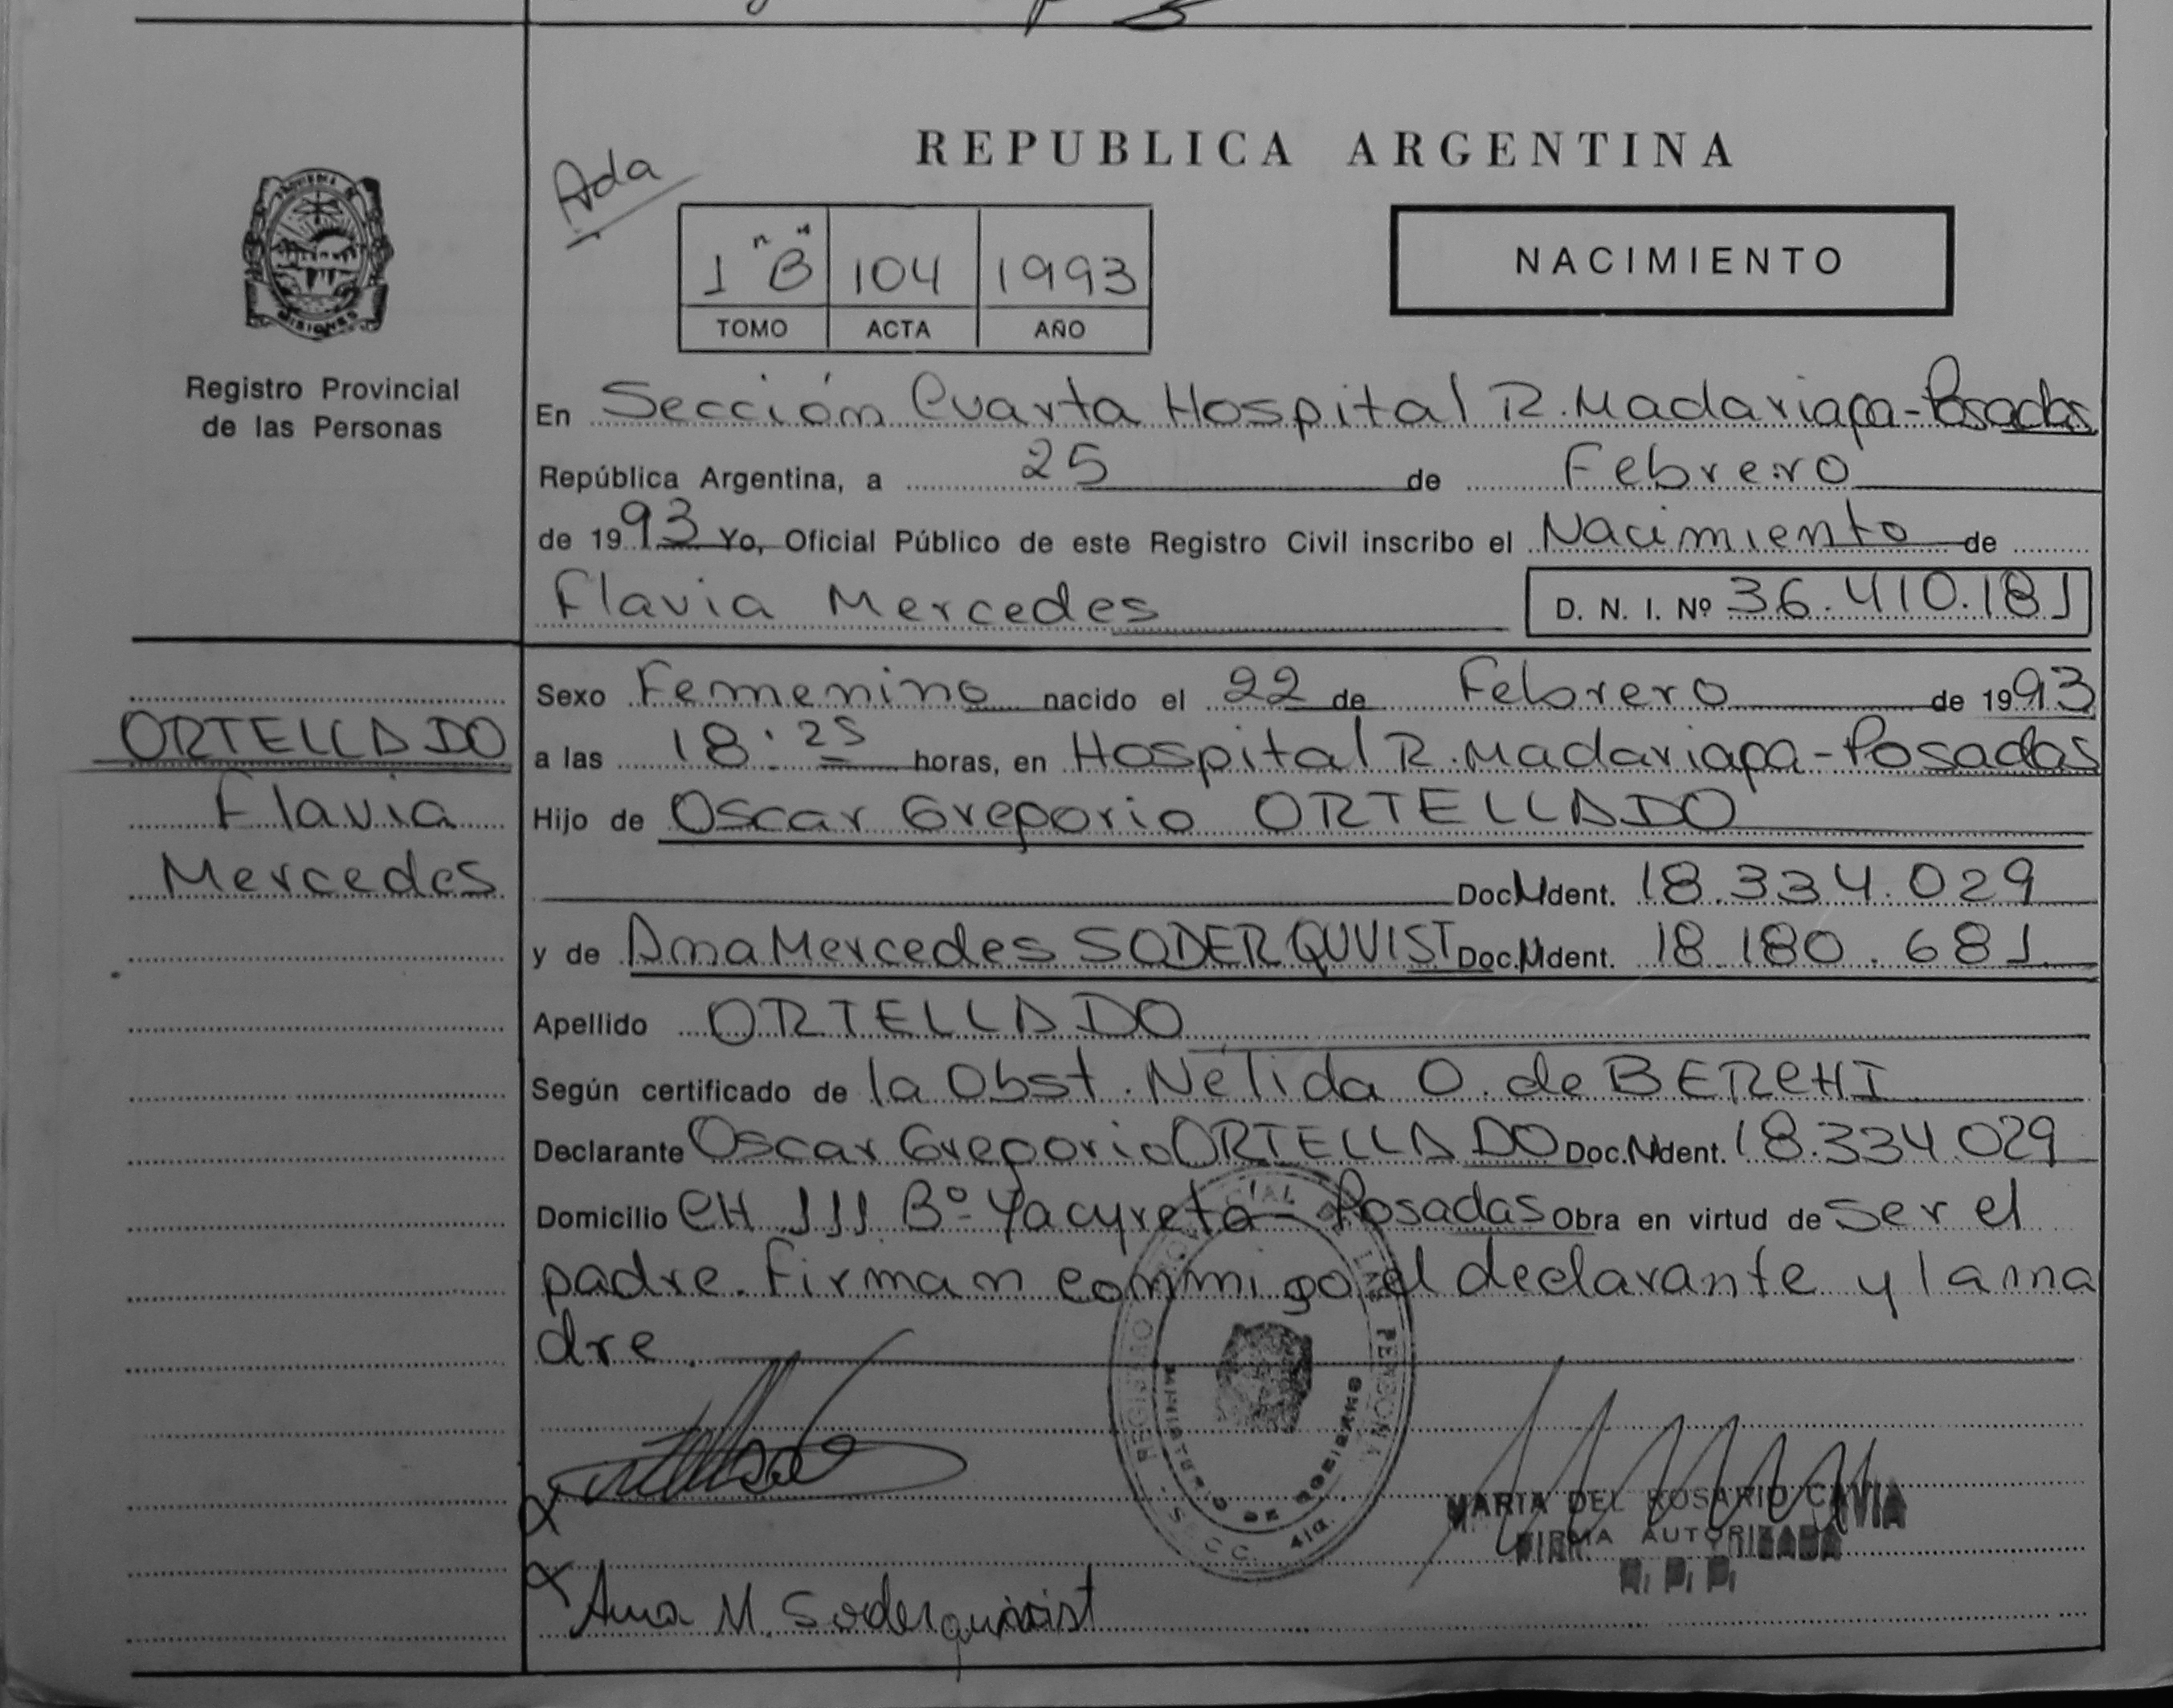 REPUBLICA ARGENTINA
Ada
1 "B" 104 1993
TOMO ACTA AÑO
NACIMIENTO
PROVINCIA DE
MISIONES
Registro Provincial
de las Personas
En Sección Cuarta Hospital R. Madariaga - Posadas
República Argentina, a 25 de Febrero
de 1993 Yo, Oficial Público de este Registro Civil inscribo el Nacimiento de
Flavia Mercedes D. N. I. Nº 36.410.181
ORTELLADO
Flavia
Mercedes
Sexo Femenino nacido el 22 de Febrero de 1993
a las 18:25 horas, en Hospital R. Madariaga - Posadas
Hijo de Oscar Gregorio ORTELLADO
Doc. Ident. 18.334.029
y de Ana Mercedes SODERQUVIST Doc. Ident. 18.180.681
Apellido ORTELLADO
Según certificado de la Obst. Nélida O. de BERCHI
Declarante Oscar Gregorio ORTELLADO Doc. Ident. 18.334.029
Domicilio CH 111 Bº Yacyretá - Posadas Obra en virtud de ser el
padre. Firman conmigo el declarante y la ma
dre.
REGISTRO PROVINCIAL DE LAS PERSONAS
MINISTERIO DE GOBIERNO
MARIA DEL ROSARIO CAVIA
FIRMA AUTORIZADA
R. P. P.
Ana M. Soderquivist